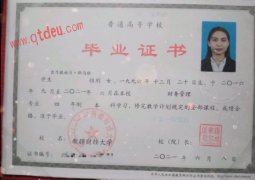 www.qtdeu.com
普通高等学校
毕业证书
学生 性别 女,一九九六年 十二月 二十 日生,于二〇一六
年 九月至二〇二一年 六月在本校 财务管理
专业 四年制 本 科学习,修完教学计划规定的全部课程,成绩合
格,准予毕业。
新疆财经大学
校(院)长:
二〇二一年 六月 八日